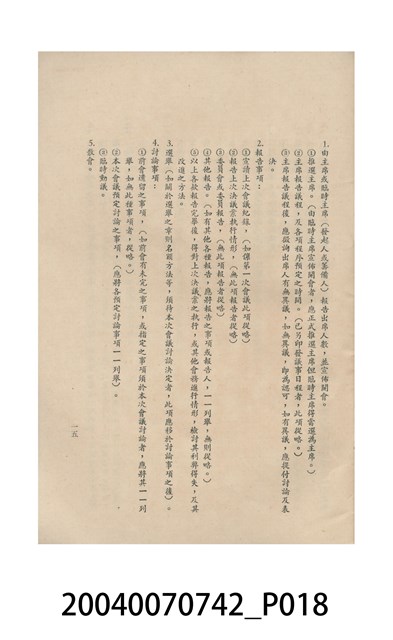 1.由主席或臨時主席(發起人或籌備人)報告出席人數，並宣佈開會。
①推選主席。(由臨時主席宣佈開會者，應正式推選主席但臨時主席得當選為主席。)
②主席報告議程，及各項程序預定之時間。(已另印發議事日程者，此項從略。)
③主席報告議程後，應徵詢出席人有無異議，如無異議，即為認可，如有異議，應提付討論及表
決。
2.報告事項：
①宣讀上次會議紀錄，(如係第一次會議此項從略)
②報告上次決議案執行情形，(無此項報告者從略)
③委員會或委員報告，(無此項報告者從略)
④其他報告。(如有其他各種報告，應將報告之事項或報告人，一一列舉，無則從略。)
⑤以上各款報告完畢後，得對上次決議案之執行，或其他會務進行情形，檢討其利弊得失，及其
改進之方法。
3.選舉(如關於選舉之章則名額方法等，須待本次會議討論決定者，此項應移於討論事項之後)。
4.討論事項：
①前會遺留之事項，(如前會有未完之事項，或指定之事項須於本次會議討論者，應將其一一列
舉，如無此種事項者，從略。)
②本次會議預定討論之事項，(應將各預定討論事項一一列舉)。
③臨時動議。
5.散會。
一五
20040070742_P018